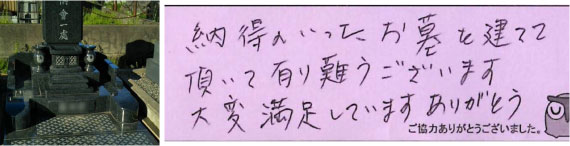 倶會一處
納得のいったお墓を建てて
頂いて有り難うございます
大変満足していますありがとう
ご協力ありがとうございました。